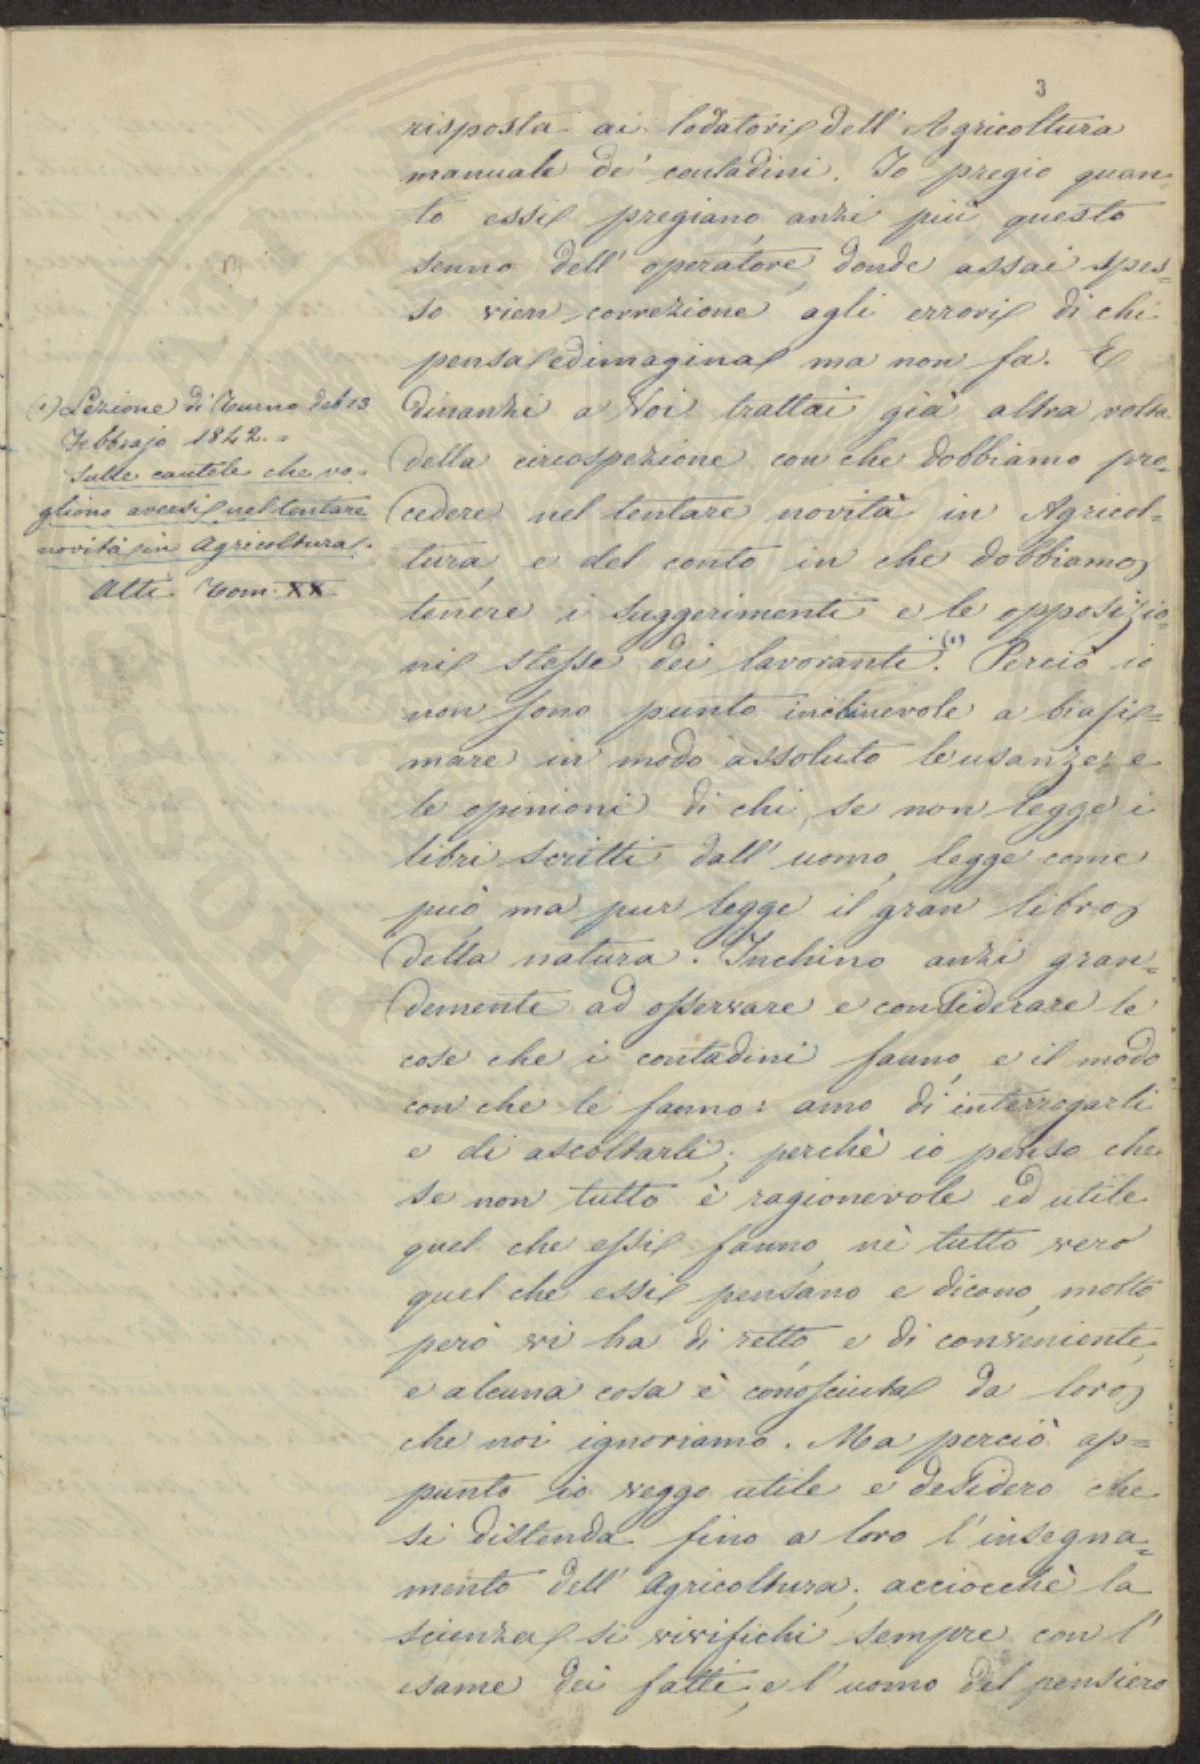 3
risposta ai lodatori dell' Agricoltura
manuale de' contadini. Io pregio quan-
to essi pregiano, anzi più questo
senno dell' operatore, donde assai spes=
so vien correzione agli errori di chi
pensa ed imagina ma non fa. E
dinanzi a Voi trattai già altra volta
della circospezione con che dobbiamo pro=
cedere nel tentare novità in Agricol=
tura, e del conto in che dobbiamo
tenere i suggerimenti e le opposizio=
ni stesse dei lavoranti.(1) Perciò io
non sono punto inchinevole a biasi=
mare in modo assoluto le usanze e
le opinioni di chi, se non legge i
libri scritti dall' uomo, legge come
può, ma pur legge il gran libro
della natura. Inchino anzi gran=
demente ad osservare e considerare le
cose che i contadini fanno, e il modo
con che le fanno: amo di interrogarli
e di ascoltarli; perchè io penso che
se non tutto è ragionevole ed utile
quel che essi fanno, nè tutto vero
quel che essi pensano e dicono, molto
però vi ha di retto, e di conveniente,
e alcuna cosa è conosciuta da loro
che noi ignoriamo. Ma perciò ap=
punto io veggo utile e desidero che
si distenda fino a loro l'insegna=
mento dell' Agricoltura; acciocchè la
scienza si vivifichi sempre con l'
esame dei fatti, e l' uomo del pensiero
(1) Lezione di Turno del 13
Febbrajo 1842. =
Sulle cautele che vo=
gliono aversi nel tentare
novità in Agricoltura.
Atti Tom. XX